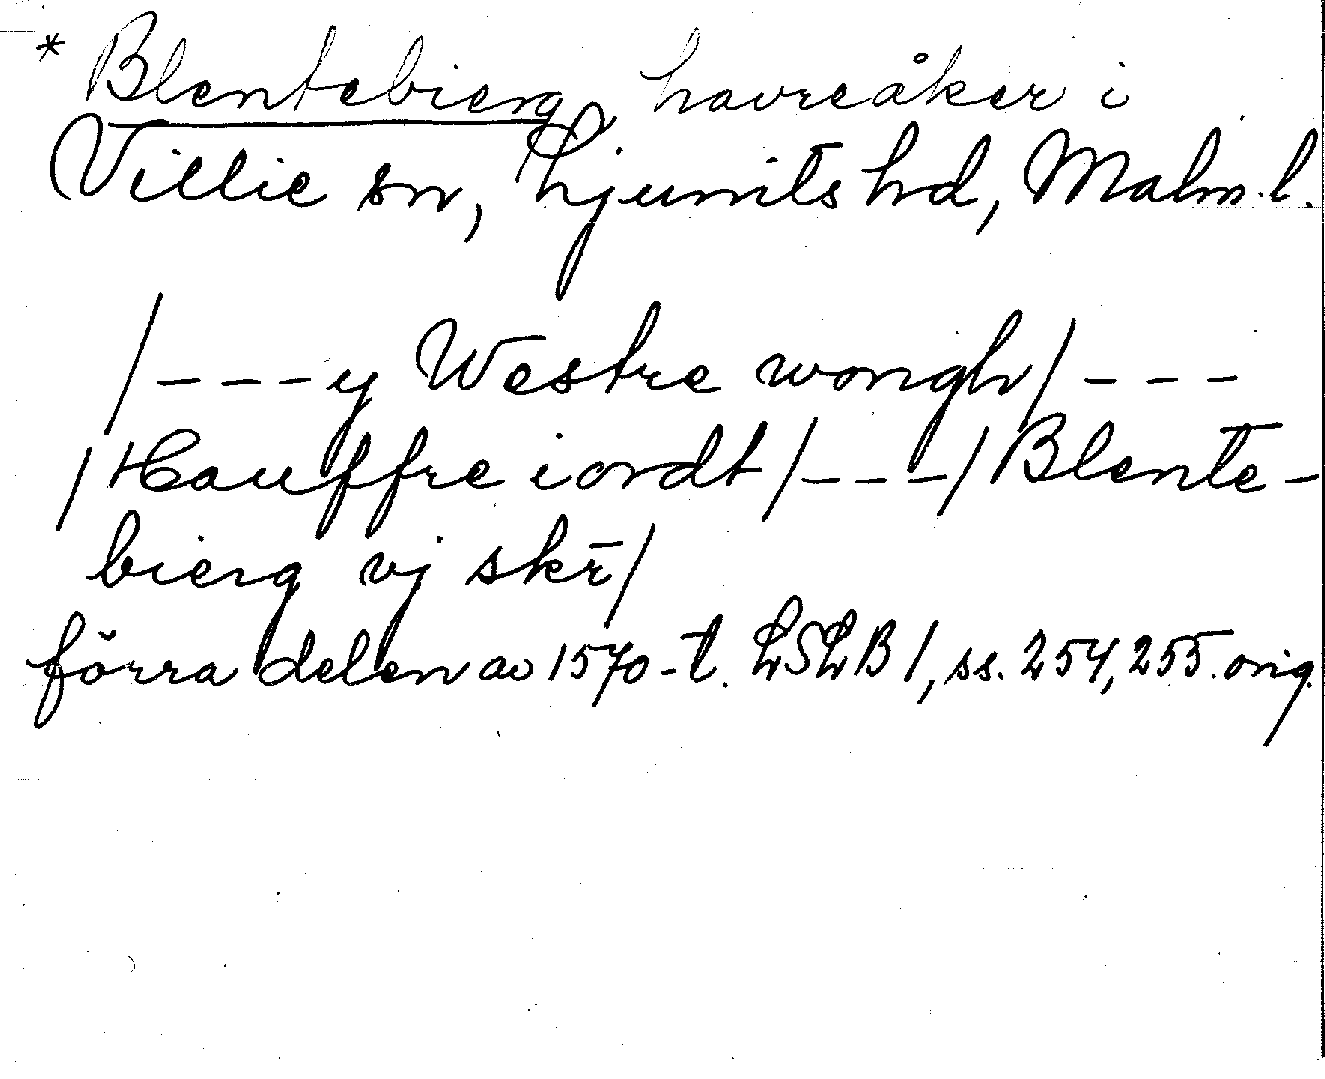 * Blentebierg, havreåker i
Villie sn, Ljunits hd, Malm.l.
/---y Westre wongh/---
/Hauffre iordt/---/Blente-
bierg vj skr̄/
förra delen av 1570-t. LSLB 1, ss. 254, 255. orig.